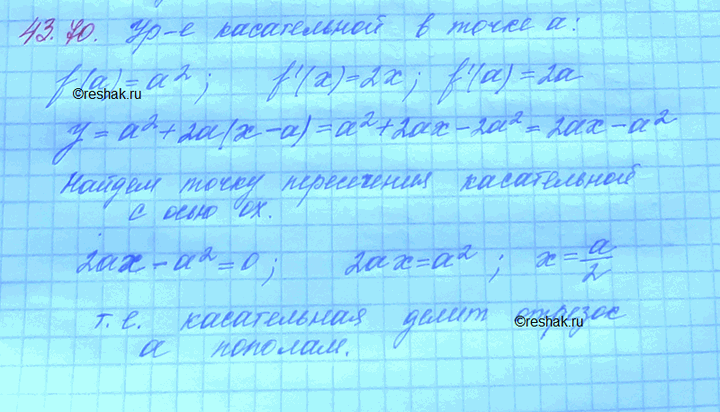 43.70. Ур-е касательной в точке a:
f(a)=a²; f'(x)=2x; f'(a)=2a
©reshak.ru
y=a²+2a(x-a)=a²+2ax-2a²=2ax-a²
Найдем точку пересечения касательной
с осью ox.
2ax-a²=0; 2ax=a²; x=a/2
т.е. касательная делит отрезок
©reshak.ru
a пополам.